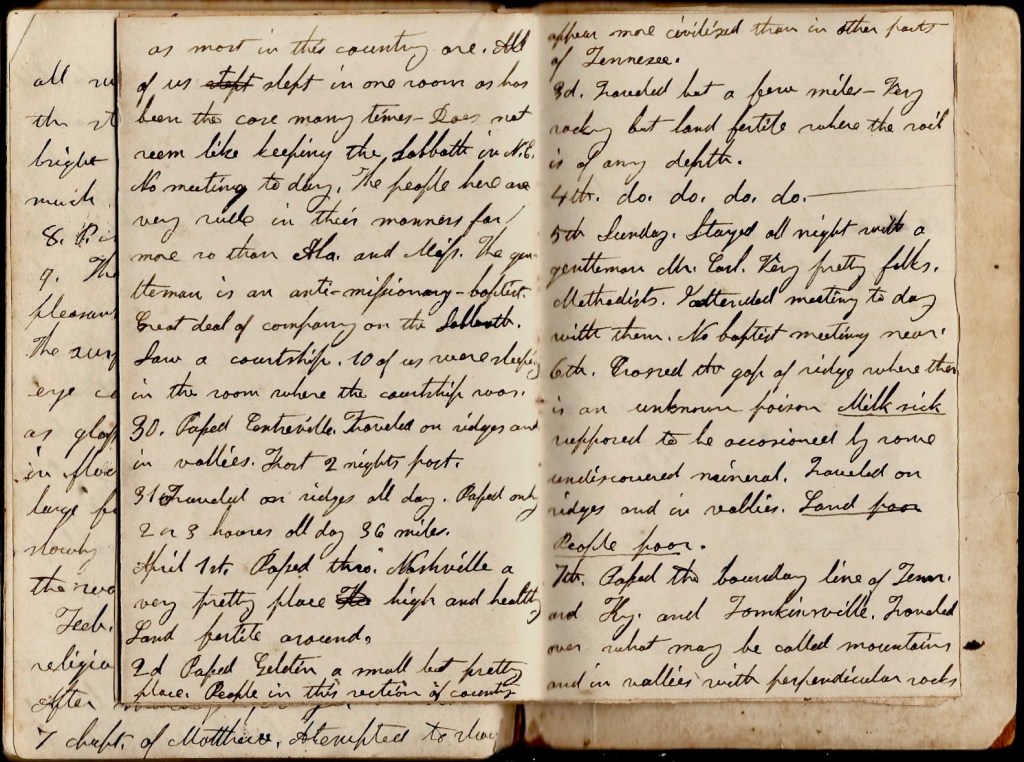 as most in this country are. All
of us stept slept in one room as has
been the case many times - Does not
seem like keeping the Sabbath in N.E.
No meeting to day. The people here are
very rude in their manners far
more so than Ala. and Miss. The gen-
tleman is an anti-missionary-baptist.
Great deal of company on the Sabbath.
Saw a courtship. 10 of us were sleeping
in the room where the courtship was.
30. Passed Centreville. Traveled on ridges and
in vallies. Frost 2 nights past.
31 Traveled on ridges all day. Passed only
2 or 3 houses all day 36 miles.
April 1st. Passed thro. Nashville a
very pretty place The high and healthy
Land fertile around.
2d Passed a small but pretty
place. People in this section of country
appear more civilized than in other parts
of Tennesee.
3d. Traveled but a few miles - Very
rocky but land fertile where the soil
is of any depth.
4th. do. do. do. do.
5th Sunday. Stayed all night with a
gentleman Mr. Very pretty folks.
Methodists. I attended meeting to day
with them. No baptist meeting near.
6th. Crossed the gap of ridge where there
is an unknown poison Milk sick
supposed to be occasioned by some
undiscovered mineral. Traveled on
ridges and in vallies. Land poor
People poor.
7th. Passed the boundary line of Tenn.
and Ky. and Tomkinsville. Traveled
over what may be called mountains
and in vallies with perpendicular rocks
all
the
bright
much
8.
9. The
pleasant
The
eye
as glass
in
large
slowly
the
Feb.
religio
After
7 chapt. of Matthew. Attempted to